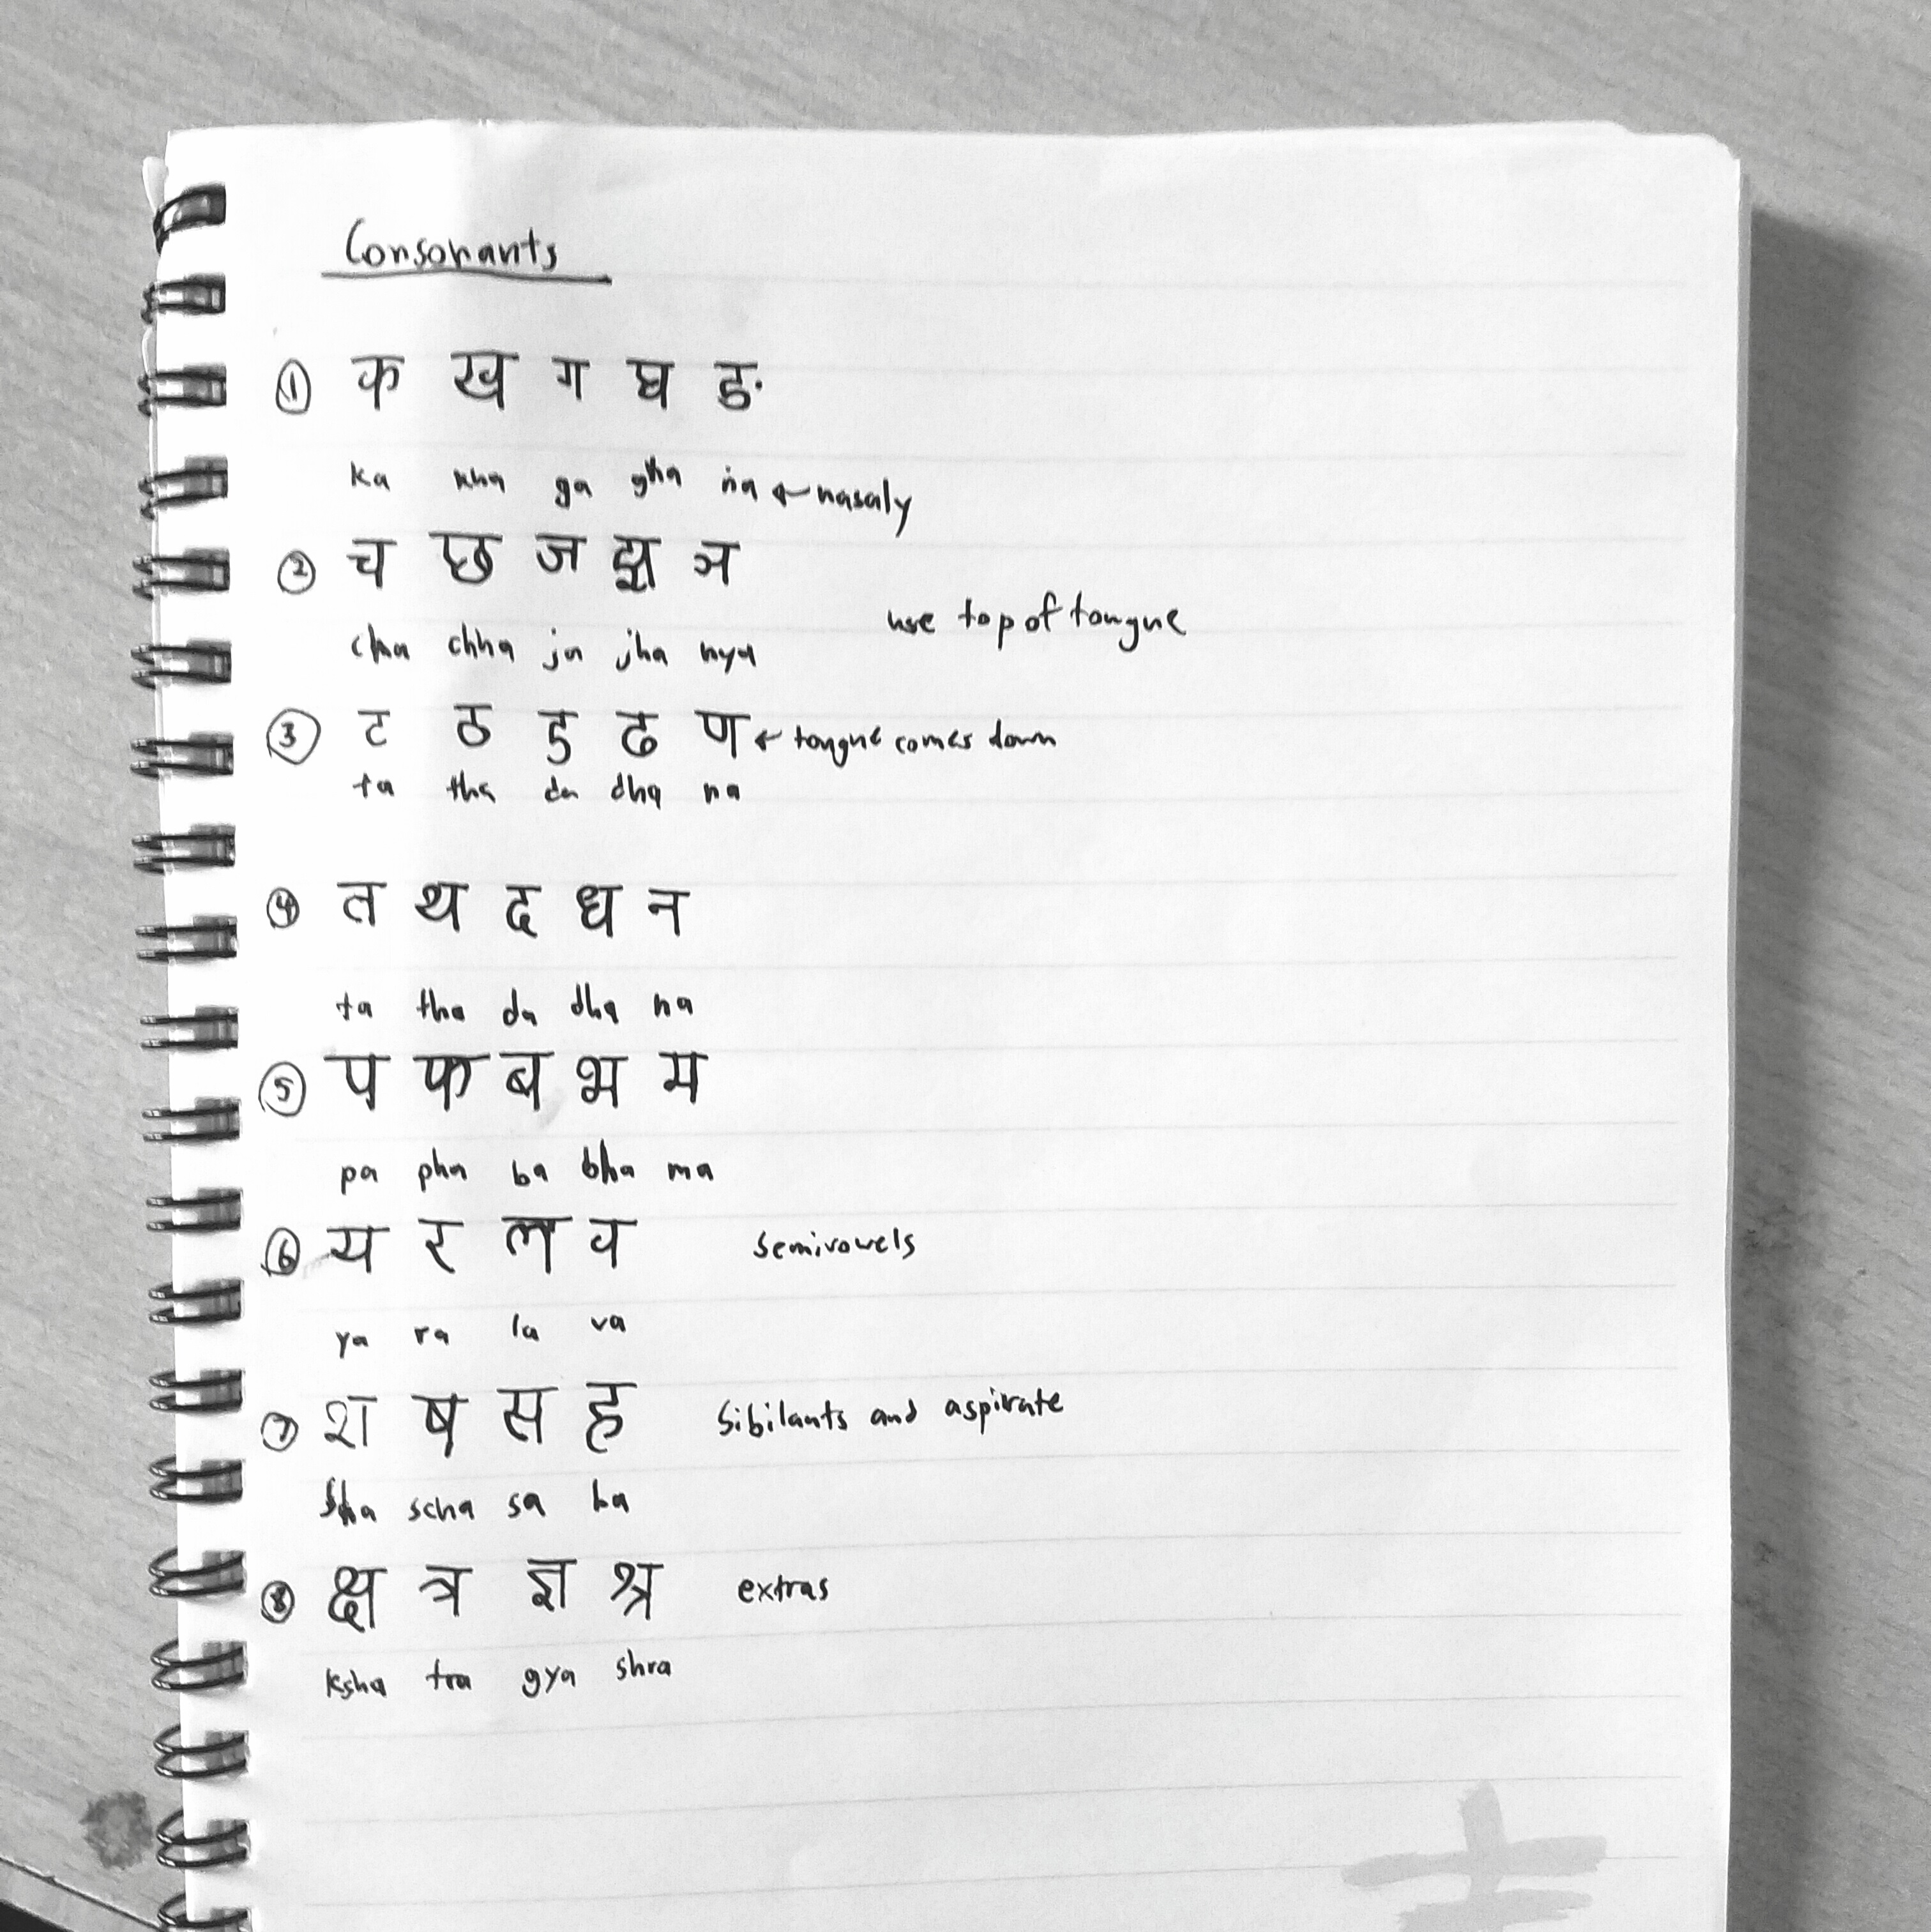 Consonants
① क ख ग घ ङ
ka kha ga gha ṅa ← nasaly
② च छ ज झ ञ
use top of tongue
cha chha ja jha nya
③ ट ठ ड ढ ण ← tongue comes down
ta tha da dha na
④ त थ द ध न
ta tha da dha na
⑤ प फ ब भ म
pa pha ba bha ma
⑥ य र ल व semivowels
ya ra la va
⑦ श ष स ह Sibilants and aspirate
sha scha sa ha
⑧ क्ष त्र ज्ञ श्र extras
ksha tra gya shra